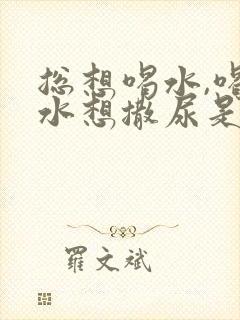 总想喝水,喝
水想撒尿是
罗文斌